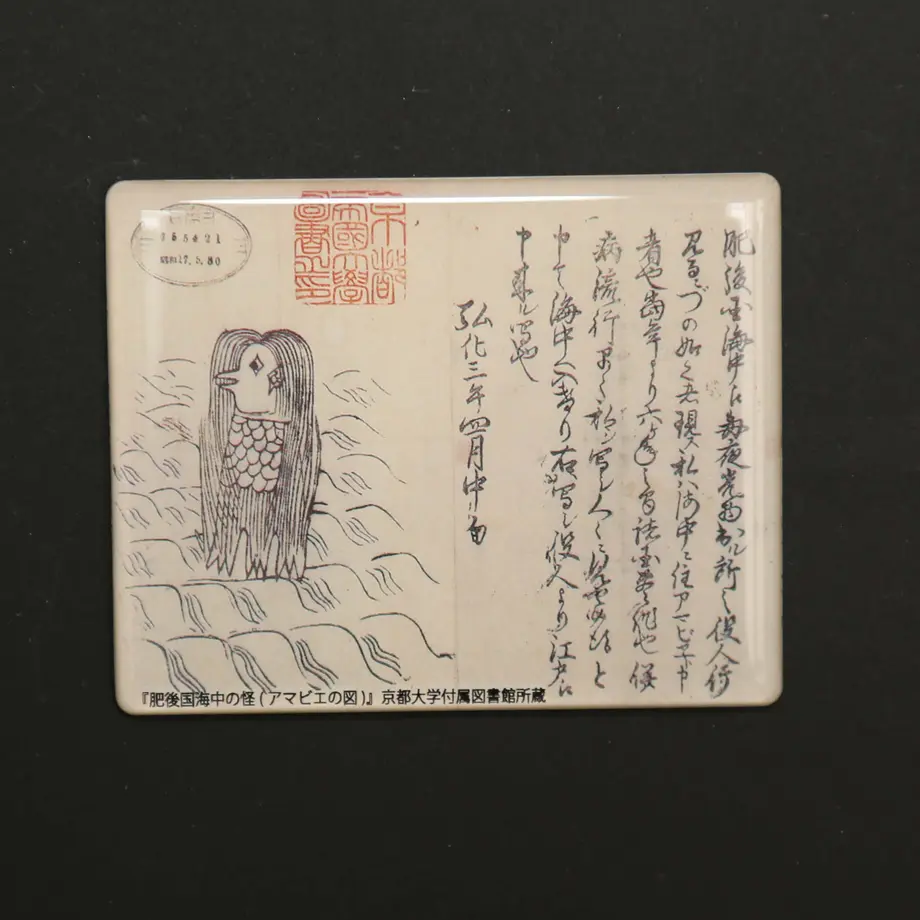 肥後国海中江毎夜光物出ル所之役人行
見るニづの如く者現ス私ハ海中ニ住アマビヱト申
者也当年より六ヶ年之間諸国豊作也併
病流行早々私シ写シ人々ニ見セ候得と
申て海中へ入けり右写シ役人より江戸江
申来ル写也
弘化三年四月中旬
京都
帝國大學
圖書之印
昭和27.5.30
『肥後国海中の怪(アマビエの図)』京都大学付属図書館所蔵